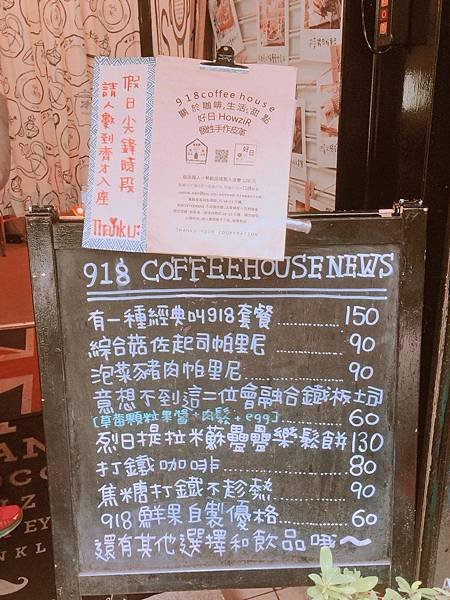 假日尖鋒時段
請人數到齊才入座
Thank U!
918coffee house
關於咖啡,生活,甜點
好日 HowziR
個性手作皮革
THANKS YOUR COOPERATION
918 COFFEEHOUSE NEWS
有一種經典叫918套餐............150
綜合菇佐起司帕里尼............90
泡菜豬肉帕里尼............90
意想不到這三位會融合鐵板土司
[草莓顆粒果醬+肉鬆+egg]............60
烈日提拉米蘇疊疊樂鬆餅130
打鐵咖啡............80
焦糖打鐵不趁熱............90
918鮮果自製優格............60
還有其他選擇和飲品哦~